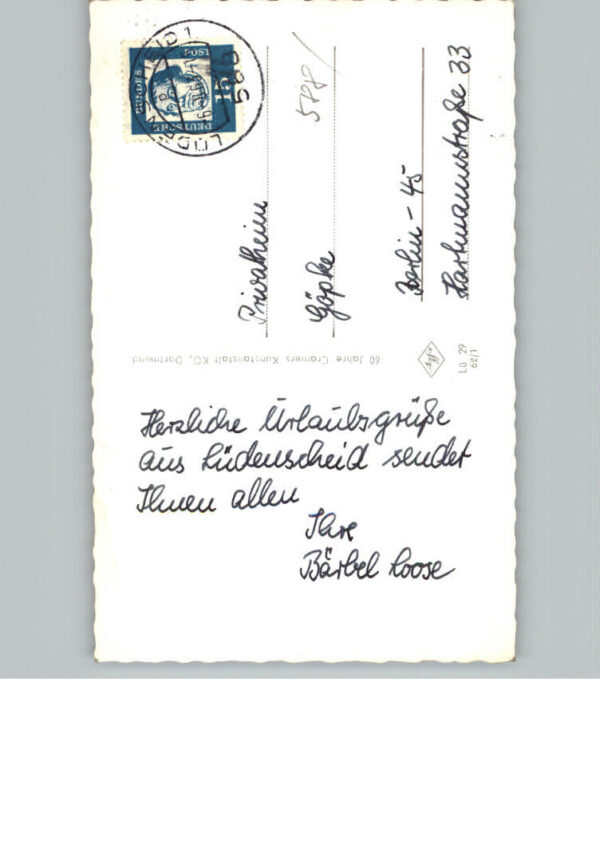 Herzliche Urlaubsgrüße
aus Lüdenscheid sendet
Ihnen allen
Ihre
Bärbel Loose
Privatheim
Göpke
Berlin - 45
Hartmannstraße 33
60 Jahre Cramers Kunstanstalt KG, Dortmund
Lü 29
62/1
DEUTSCHE
BUNDES
POST
15
588